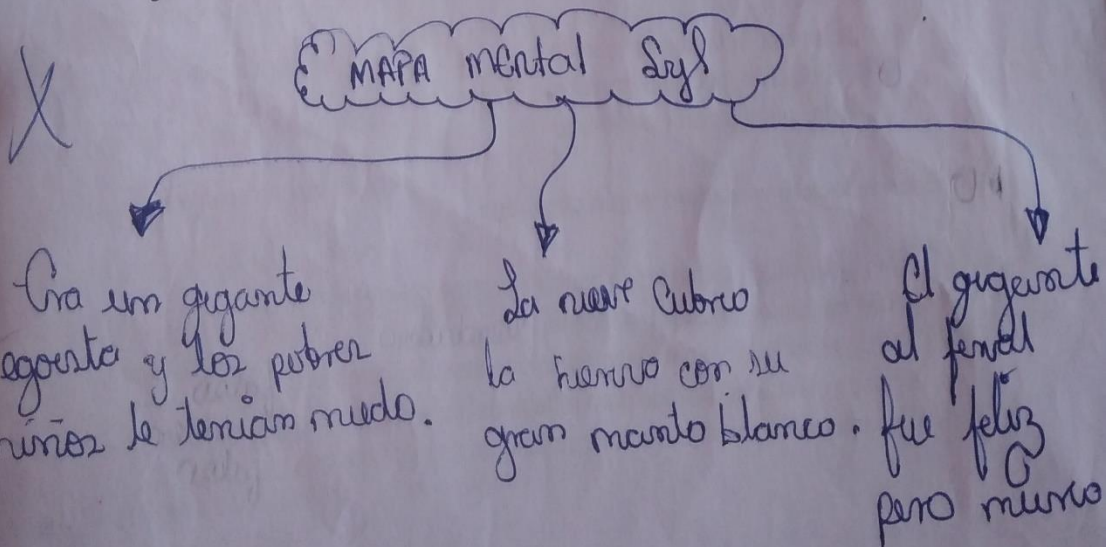 MAPA mental SyS
Era un gigante
egoista y los pobres
niños le tenian miedo.
La nieve cubrio
la hierva con su
gran manto blanco.
El gigante
al final
fue feliz
pero murio